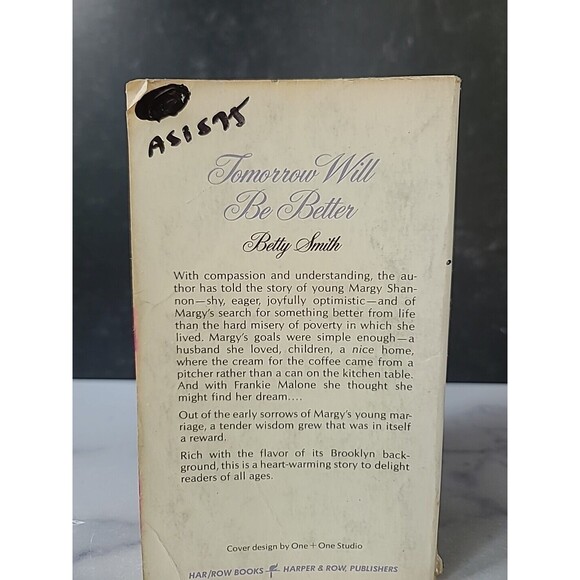 AS1S75
Tomorrow Will
Be Better
Betty Smith
With compassion and understanding, the au-
thor has told the story of young Margy Shan-
non—shy, eager, joyfully optimistic—and of
Margy's search for something better from life
than the hard misery of poverty in which she
lived. Margy's goals were simple enough—a
husband she loved, children, a nice home,
where the cream for the coffee came from a
pitcher rather than a can on the kitchen table.
And with Frankie Malone she thought she
might find her dream....
Out of the early sorrows of Margy's young mar-
riage, a tender wisdom grew that was in itself
a reward.
Rich with the flavor of its Brooklyn back-
ground, this is a heart-warming story to delight
readers of all ages.
Cover design by One + One Studio
HAR/ROW BOOKS HARPER & ROW, PUBLISHERS